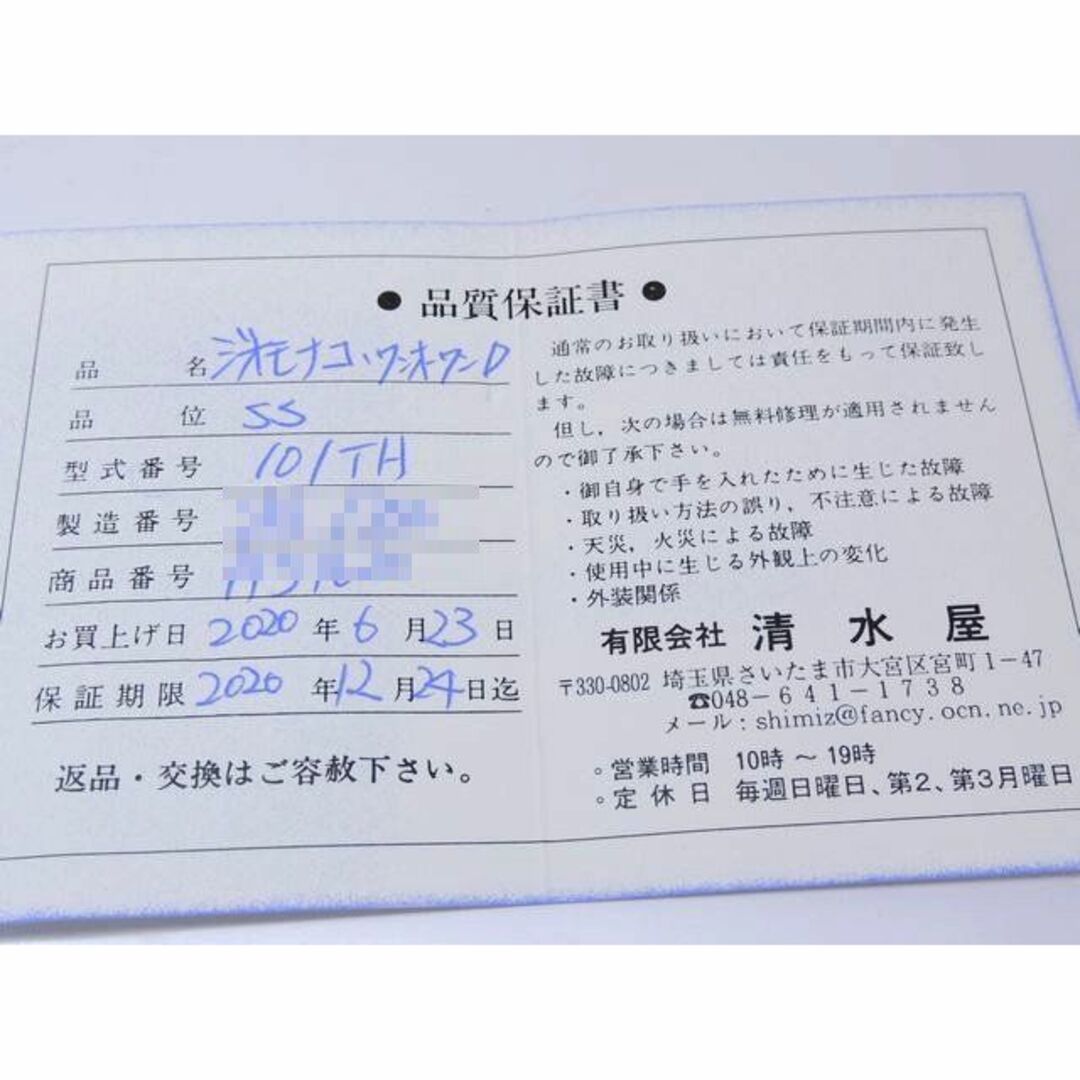 ● 品質保証書 ●
品名 ジオモナコ・ワンオーワンD
品位 SS
型式番号 101TH
製造番号
商品番号
お買上げ日 2020年6月23日
保証期限 2020年12月24日迄
返品・交換はご容赦下さい。
通常のお取り扱いにおいて保証期間内に発生
した故障につきましては責任をもって保証致し
ます。
但し，次の場合は無料修理が適用されません
ので御了承下さい。
・御自身で手を入れたために生じた故障
・取り扱い方法の誤り，不注意による故障
・天災，火災による故障
・使用中に生じる外観上の変化
・外装関係
有限会社 清水屋
〒330-0802 埼玉県さいたま市大宮区宮町1-47
☎048-641-1738
メール：shimiz@fancy.ocn.ne.jp
○営業時間 10時～19時
○定休日 毎週日曜日、第2、第3月曜日